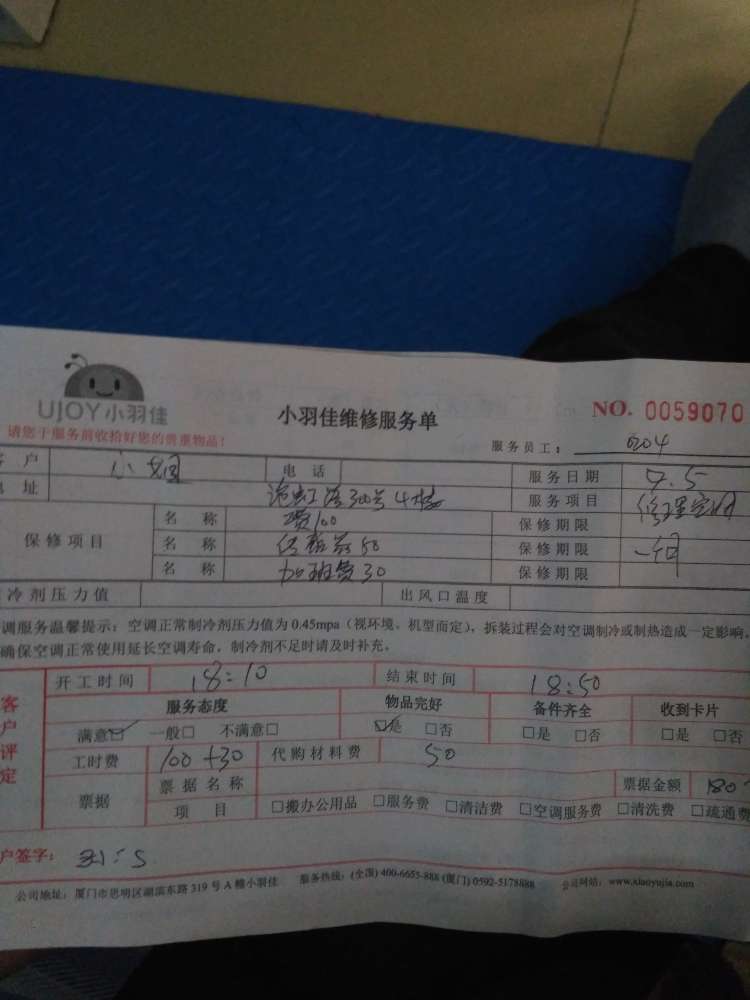 UJOY小羽佳
小羽佳维修服务单
NO. 0059070
请您于服务前收拾好您的贵重物品!
服务员工:
户 小 电话 服务日期 7.5
址 300号4楼 服务项目 修理空调
保修项目 名称 费100 保修期限
名称 50 保修期限
名称 加班费30 保修期限
冷剂压力值 出风口温度
调服务温馨提示:空调正常制冷剂压力值为0.45mpa(视环境、机型而定),拆装过程会对空调制冷或制热造成一定影响,
确保空调正常使用延长空调寿命,制冷剂不足时请及时补充。
客户评定
开工时间 18:10 结束时间 18:50
服务态度 物品完好 备件齐全 收到卡片
满意☑ 一般□ 不满意□ ☑是 □否 □是 □否 □是 □否
工时费 100+30 代购材料费 50
票据 票据名称 票据金额 180
项目 □搬办公用品 □服务费 □清洁费 □空调服务费 □清洗费 □疏通费
户签字:
公司地址:厦门市思明区湖滨东路319号A幢小羽佳 服务热线:(全国)400-6655-888(厦门)0592-5178888 公司网站:www.xiaoyujia.com